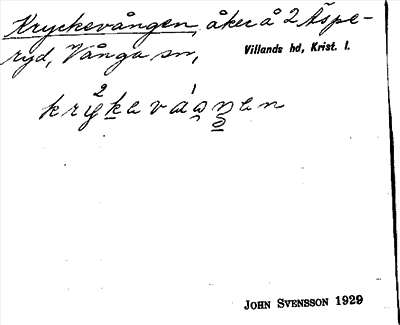 Kryckevången, åker å 2 Äspe-
ryd, Vånga sn,
Villands hd, Krist. l.
JOHN SVENSSON 1929